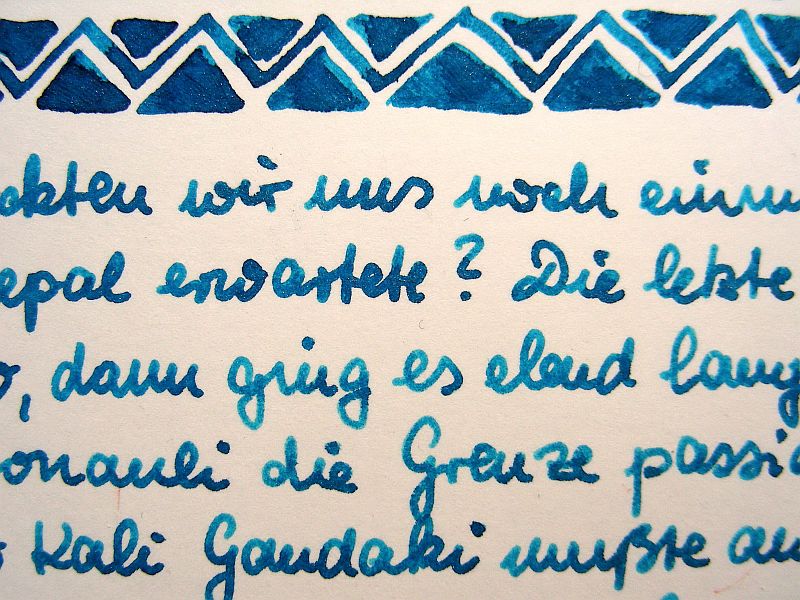 ckten wir uns noch einm
epal erwartete? Die letzte
o, dann ging es elend lang
onauli die Grenze passi
Kali Gandaki mußte au